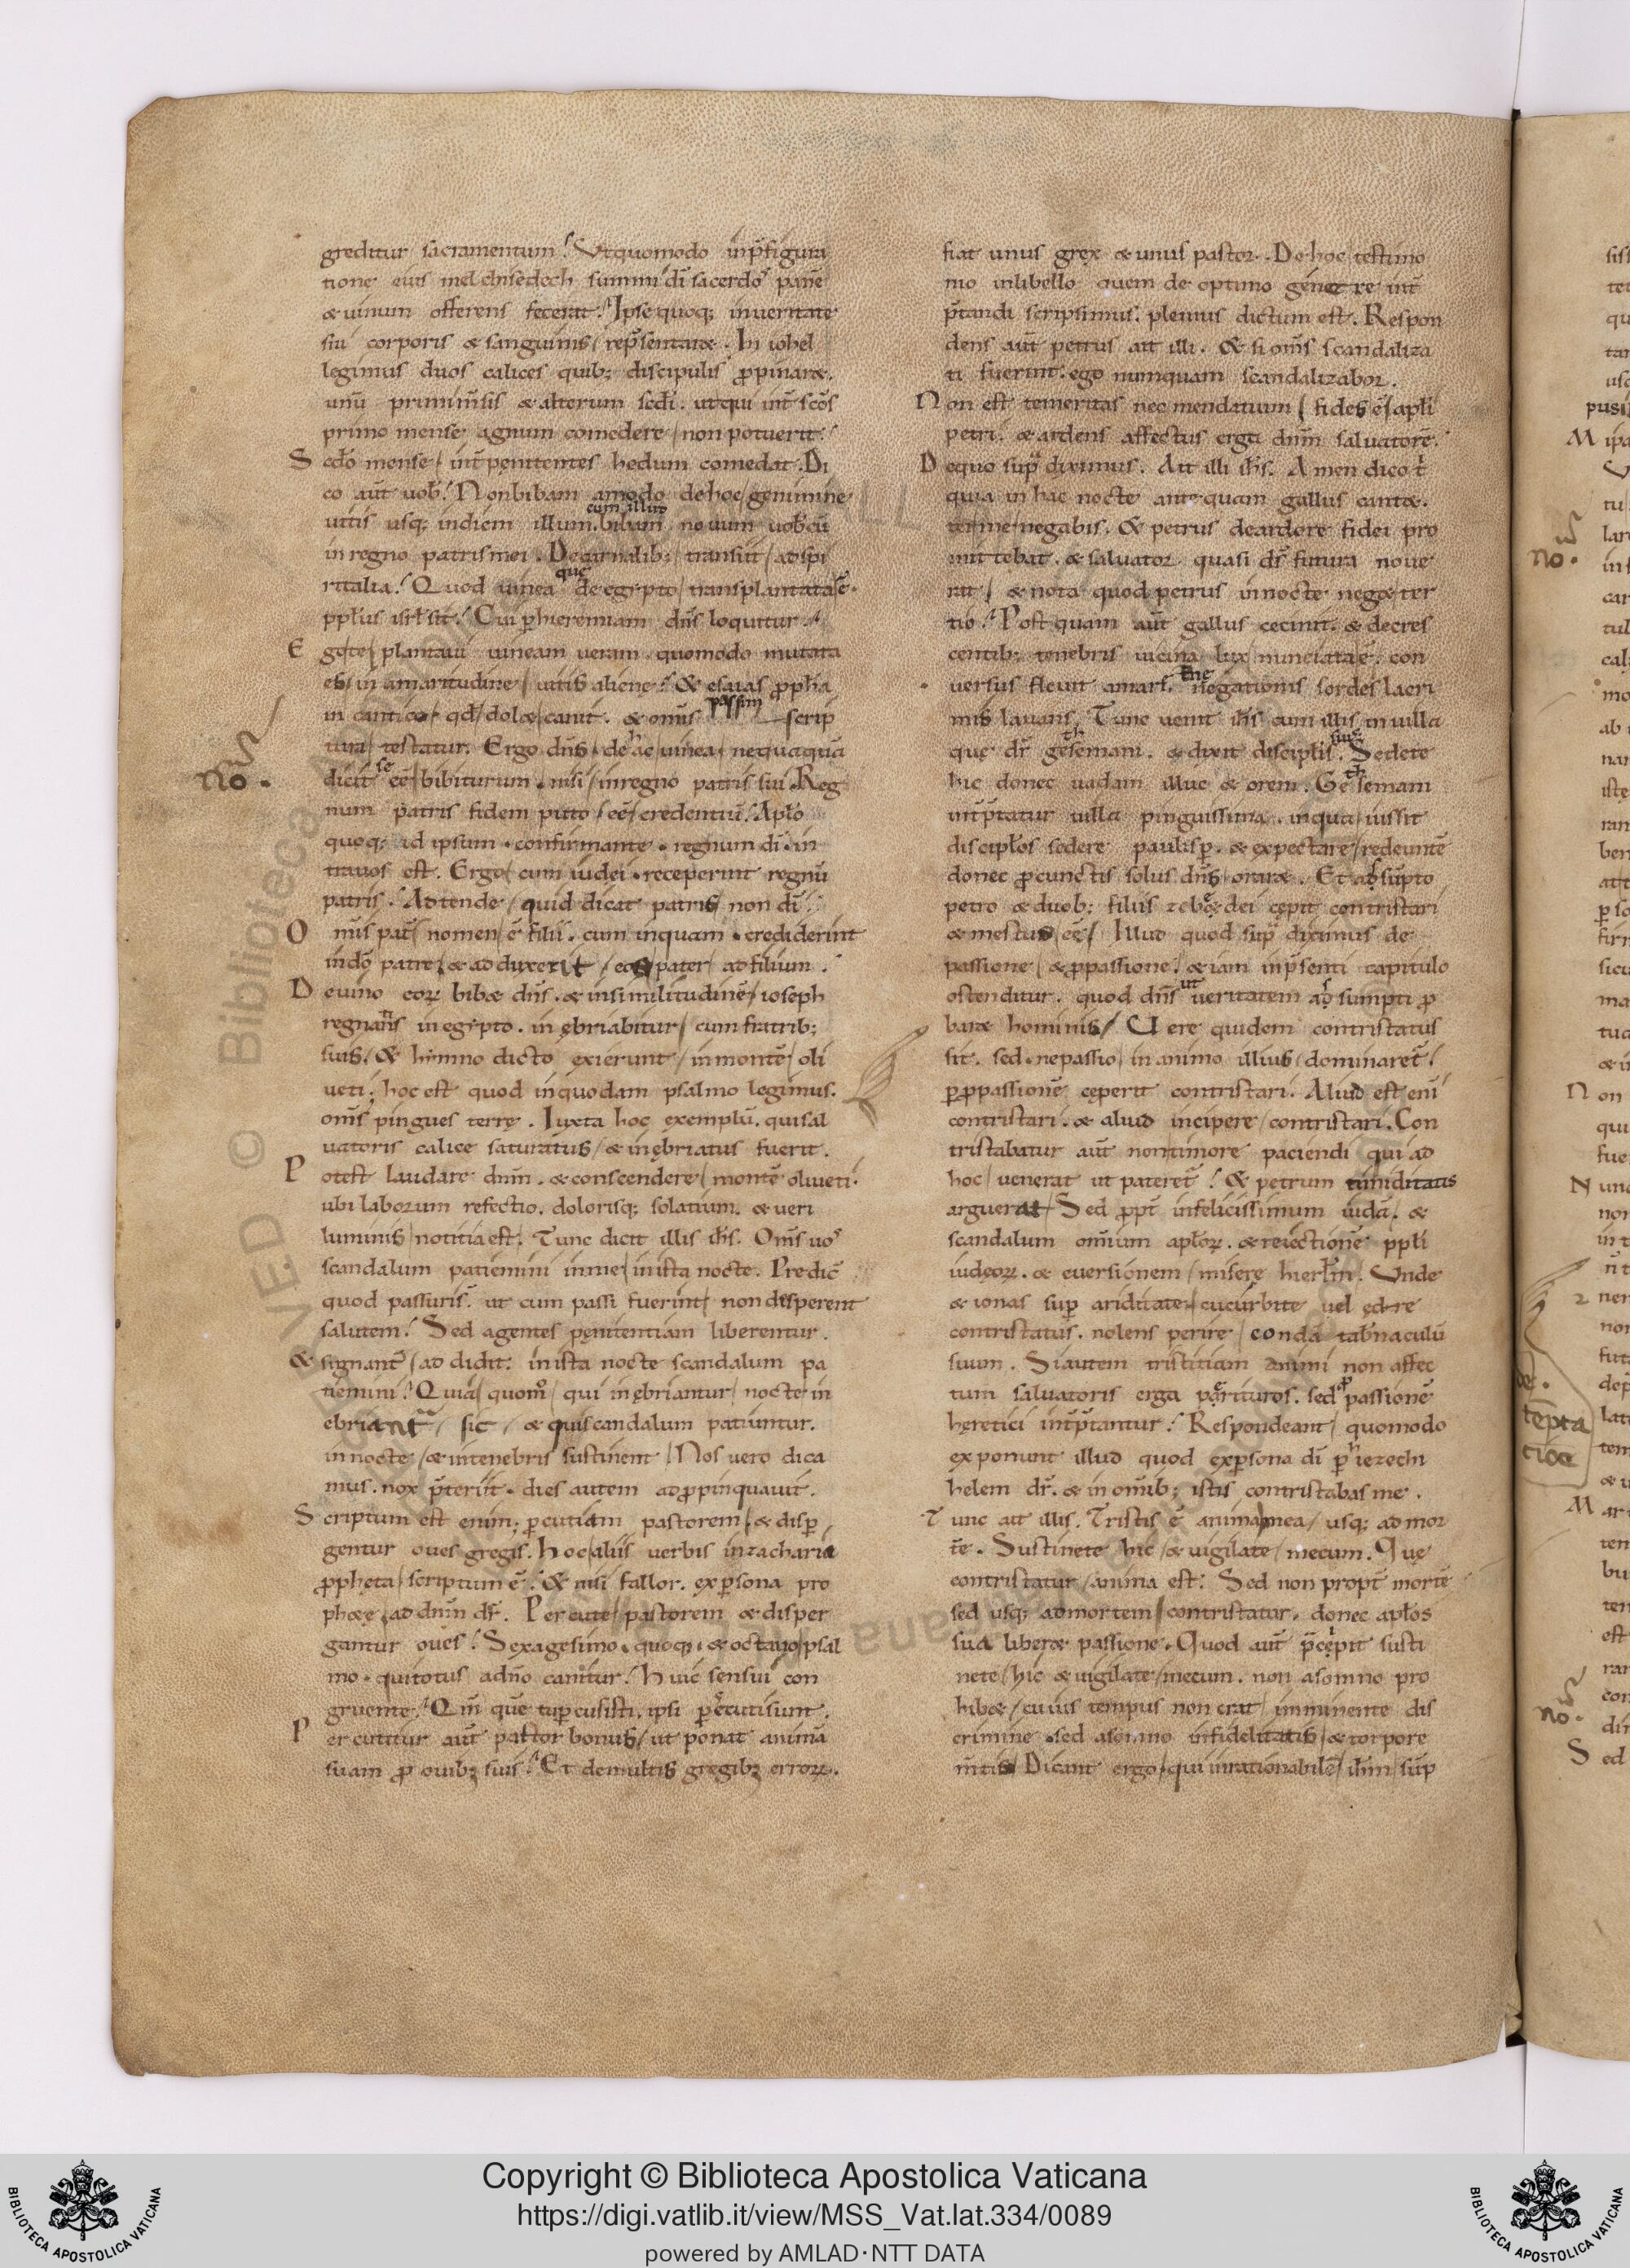 greditur sacramentum. Ut quomodo in p̄figura
tione eius melchisedech summi dī sacerdos panē
& uinum offerens fecerat. Ipse quoq; in ueritate
sui corporis & sanguinis rep̄sentar&. In iohel
legimus duos calices quib; discipulis ꝓpinar&.
unū primi m̄sis & alterum scdī. ut qui int̄ scōs
primo mense agnum comedere non potuerit.
Scdō mense int̄ penitentes hedum comedat. Di
co aut̄ uob. Non bibam amodo de hoc genimine
uitis usq; in diem illum cum illud bibam nouum uobcū
in regno patris mei. De carnalib; transiit ad spi
ritalia. Quod uinea que de egypto transplantata ē
ppl̄us isrl sit. Cui p hieremiam dn̄s loquitur.
Ego te plantaui uineam ueram. quomodo mutata
es in amaritudine uitis aliene. & esaias ꝓph̄a
in cantico qd̄ dolco canit. & omis passim scrip
tura testatur. Ergo dn̄s de hac uinea nequaquā
dicit se ēē bibiturum. nisi in regno patris sui. Reg
num patris fidem puto ēē credentiū. Apl̄o
quoq; id ipsum confirmante. regnum dī in
tra uos est. Ergo cum iudei receperint regnū
patris. Adtende quid dicat patris non dī.
Omis pat̄ nomen ē filii. cum inquam crediderint
in dō patre & adduxerit eos pater ad filium.
De uino eoꝝ bib& dn̄s. & in similitudinē ioseph
regnans in egypto. inębriabitur cum fratrib;
suis. & hymno dicto exierunt in montē oli
ueti. hoc est quod in quodam psalmo legimus.
omīs pingues terrę. Iuxta hoc exemplū. qui sal
uatoris calice saturatus & inębriatus fuerit.
Potest laudare dnm̄. & conscendere montē oliueti.
ubi laborum refectio. dolorisq; solatium. & ueri
luminis notitia est. Tunc dicit illis ih̄s. Om̄s uos
scandalum patiemini in me in ista nocte. Predic̄
quod passuri s̄. ut cum passi fuerint non desperent
salutem. Sed agentes pęnitentiam liberentur.
& signant̄ addidit: in ista nocte scandalum pa
tiemini. Quia quom̊ qui inębriantur nocte in
ebriant̄ sic & qui scandalum patiuntur.
in nocte & in tenebris sustinent. Nos uero dica
mus. nox p̄teriit. dies autem adpropinquauit.
Scriptum est enim; percutiam pastorem & disp
gentur oues gregis. Hoc aliis uerbis in zacharia
ꝓpheta scriptum ē. & nisi fallor. ex p̱sona pro
ph&ę ad dnm̄ dr̄. Percute pastorem & disper
gantur oues. Sexagesimo quoq; & octauo psal
mo. qui totus a dn̄o canitur. Huic sensui con
gruente. Qm̄ quē tu p̱cussisti. ipsi persecuti sunt.
Percutitur aut̄ pastor bonus ut ponat animā
suam ꝓ ouib; suis. Et de multis gregib; erroꝝ.
fiat unus grex & unus pastor. De hoc testimo
nio in libello quem de optimo genere int̄
p̄tandi scripsimus. plenius dictum est. Respon
dens aut̄ petrus ait illi. & si om̄s scandaliza
ti fuerint. ego numquam scandalizabor.
Non est temeritas nec mendatium fides ē apl̄i
petri. & ardens affectus erga dnm̄ saluatorē.
De quo sup̄ diximus. Ait illi ih̄s. Amen dico t̄
quia in hac nocte antequam gallus cant&.
ter me negabis. & petrus de ardore fidei pro
mittebat. & saluator quasi ds̄ futura noue
rat. & nota quod petrus in nocte neg& ter
tio. Postquam aut̄ gallus cecinit. & decres
centib; tenebris uicina lux nunciata ē. con
uersus fleuit amare. negationis sordes lacri
mis lauans. Tunc uenit ih̄s cum illis in uilla
quę dr̄ gethsemani. & dixit discipl̄is suis. Sedete
hic donec uadam illuc & orem. Gethsemani
int̄p̄tatur uilla pinguissima. in qua iussit
discipl̄os sedere paulisp̱. & expectare redeuntē
donec ꝓ cunctis solus dn̄s orar&. Et adsūpto
petro & duob; filiis zebedei cępit contristari
& mestus ēē. Illud quod sup̄ diximus de
passione & ꝓpassione. & iam in p̄senti capitulo
ostenditur. quod dn̄s ut ueritatem adsumpti ꝓ
bar& hominis. Uere quidem contristatus
sit. sed ne passio in animo illius dominaret̄.
p̱ ꝓpassionē cęperit contristari. Aliud est eni
contristari. & aliud incipere contristari. Con
tristabatur aut̄ non timore paciendi qui ad
hoc uenerat ut pateret̄. & petrum timiditatis
arguerat. Sed ꝓpt̄ infelicissimum iudā. &
scandalum omnium apl̄oꝝ. & reiectionē ppl̄i
iudeoꝝ. & euersionem miserę hierl̄m. Unde
& ionas sup̱ ariditate cucurbite uel ędere
contristatus. nolens perire condā tab̄naculū
suum. Si autem tristitiam animi non affec
tum saluatoris erga perituros. sed passionē
hęretici int̄p̄tantur. Respondeant quomodo
exponunt illud quod ex p̱sona dī p̱ hiezechi
helem dr̄. & in omīb; istis contristabas me.
Tunc ait illis. Tristis ē anima mea usq; ad mor
tē. Sustinete hic & uigilate mecum. Quę
contristatur anima est. Sed non propt̄ mortē
sed usq; ad mortem contristatur. donec apl̄os
sua liber& passione. Quod aut̄ p̄cępit susti
nete hic & uigilate mecum. non a somno pro
hib& cuius tempus non erat imminente dis
crimine. sed a somno infidelitatis & torpore
mtis. Dicant ergo qui inrationabilē ih̄m sūp
no.